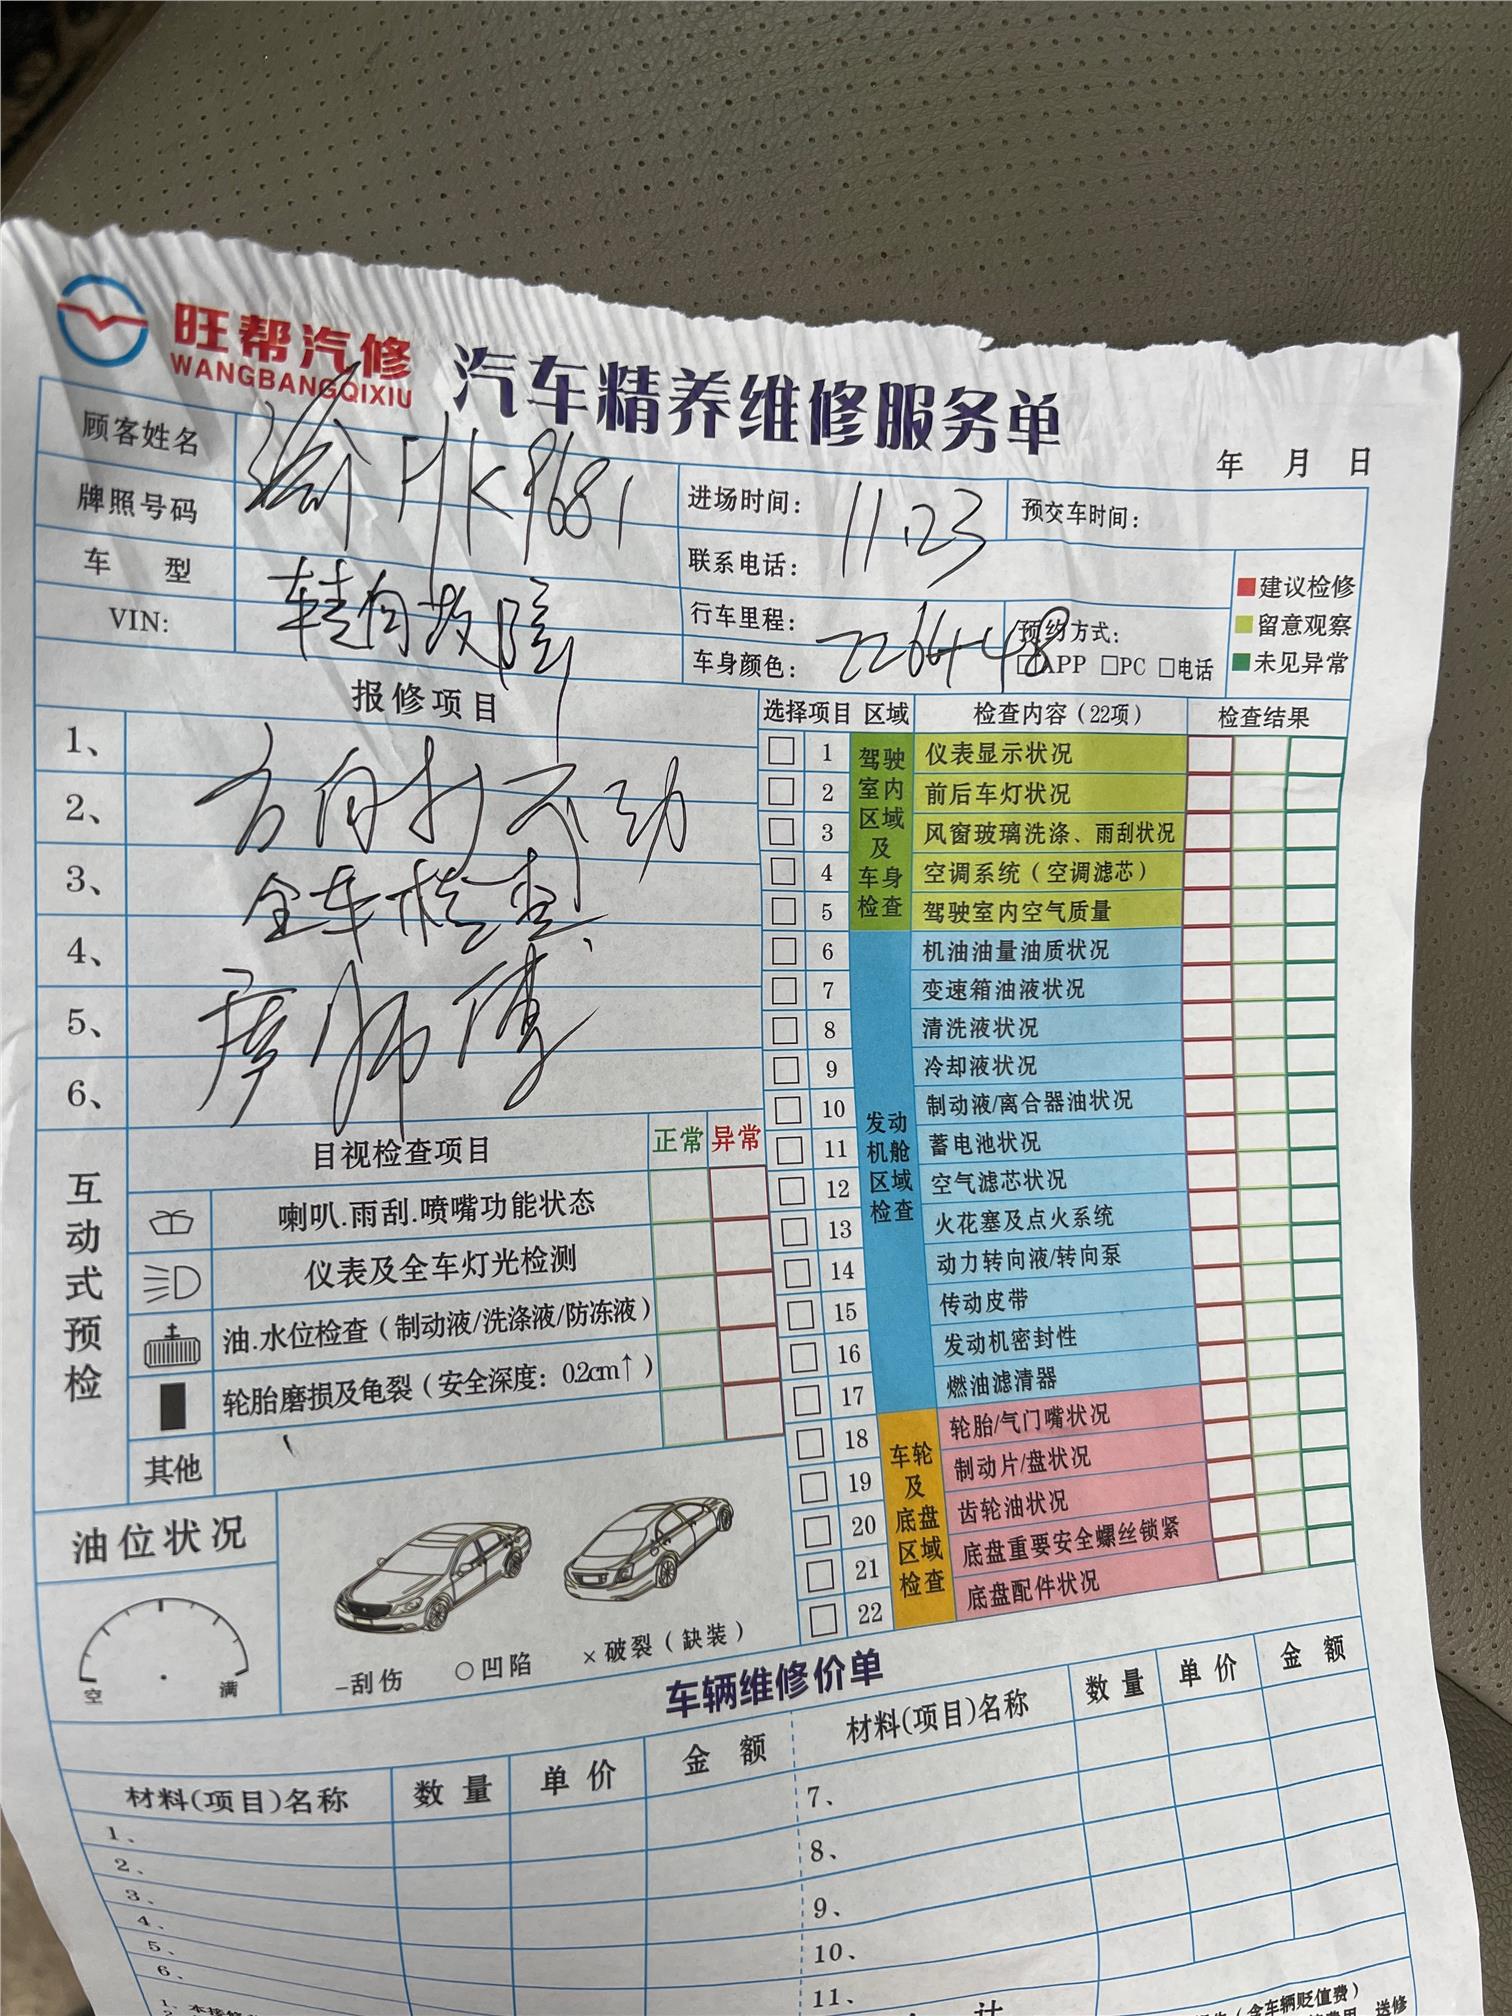 旺帮汽修
WANGBANGQIXIU
汽车精养维修服务单
年 月 日
顾客姓名
牌照号码
渝
9681
进场时间：
11.23
预交车时间：
车 型
联系电话：
VIN：
转向故障
行车里程：
226448
预约方式：
车身颜色：
□APP □PC □电话
建议检修
留意观察
未见异常
报修项目
1、
2、
方向打不动
3、
全车检查
4、
5、
师傅
6、
选择 项目 区域 检查内容（22项） 检查结果
驾驶室内区域及车身检查
1 仪表显示状况
2 前后车灯状况
3 风窗玻璃洗涤、雨刮状况
4 空调系统（空调滤芯）
5 驾驶室内空气质量
发动机舱区域检查
6 机油油量油质状况
7 变速箱油液状况
8 清洗液状况
9 冷却液状况
10 制动液/离合器油状况
11 蓄电池状况
12 空气滤芯状况
13 火花塞及点火系统
14 动力转向液/转向泵
15 传动皮带
16 发动机密封性
17 燃油滤清器
车轮及底盘区域检查
18 轮胎/气门嘴状况
19 制动片/盘状况
20 齿轮油状况
21 底盘重要安全螺丝锁紧
22 底盘配件状况
互动式预检
目视检查项目 正常 异常
喇叭.雨刮.喷嘴功能状态
仪表及全车灯光检测
油.水位检查（制动液/洗涤液/防冻液）
轮胎磨损及龟裂（安全深度：0.2cm↑）
其他
油位状况
空 满
-刮伤 ○凹陷 ×破裂（缺装）
车辆维修价单
材料(项目)名称 数量 单价 金额
材料(项目)名称 数量 单价 金额
1、
2、
3、
4、
5、
6、
7、
8、
9、
10、
11、
计
（含车辆贬值费）
送修